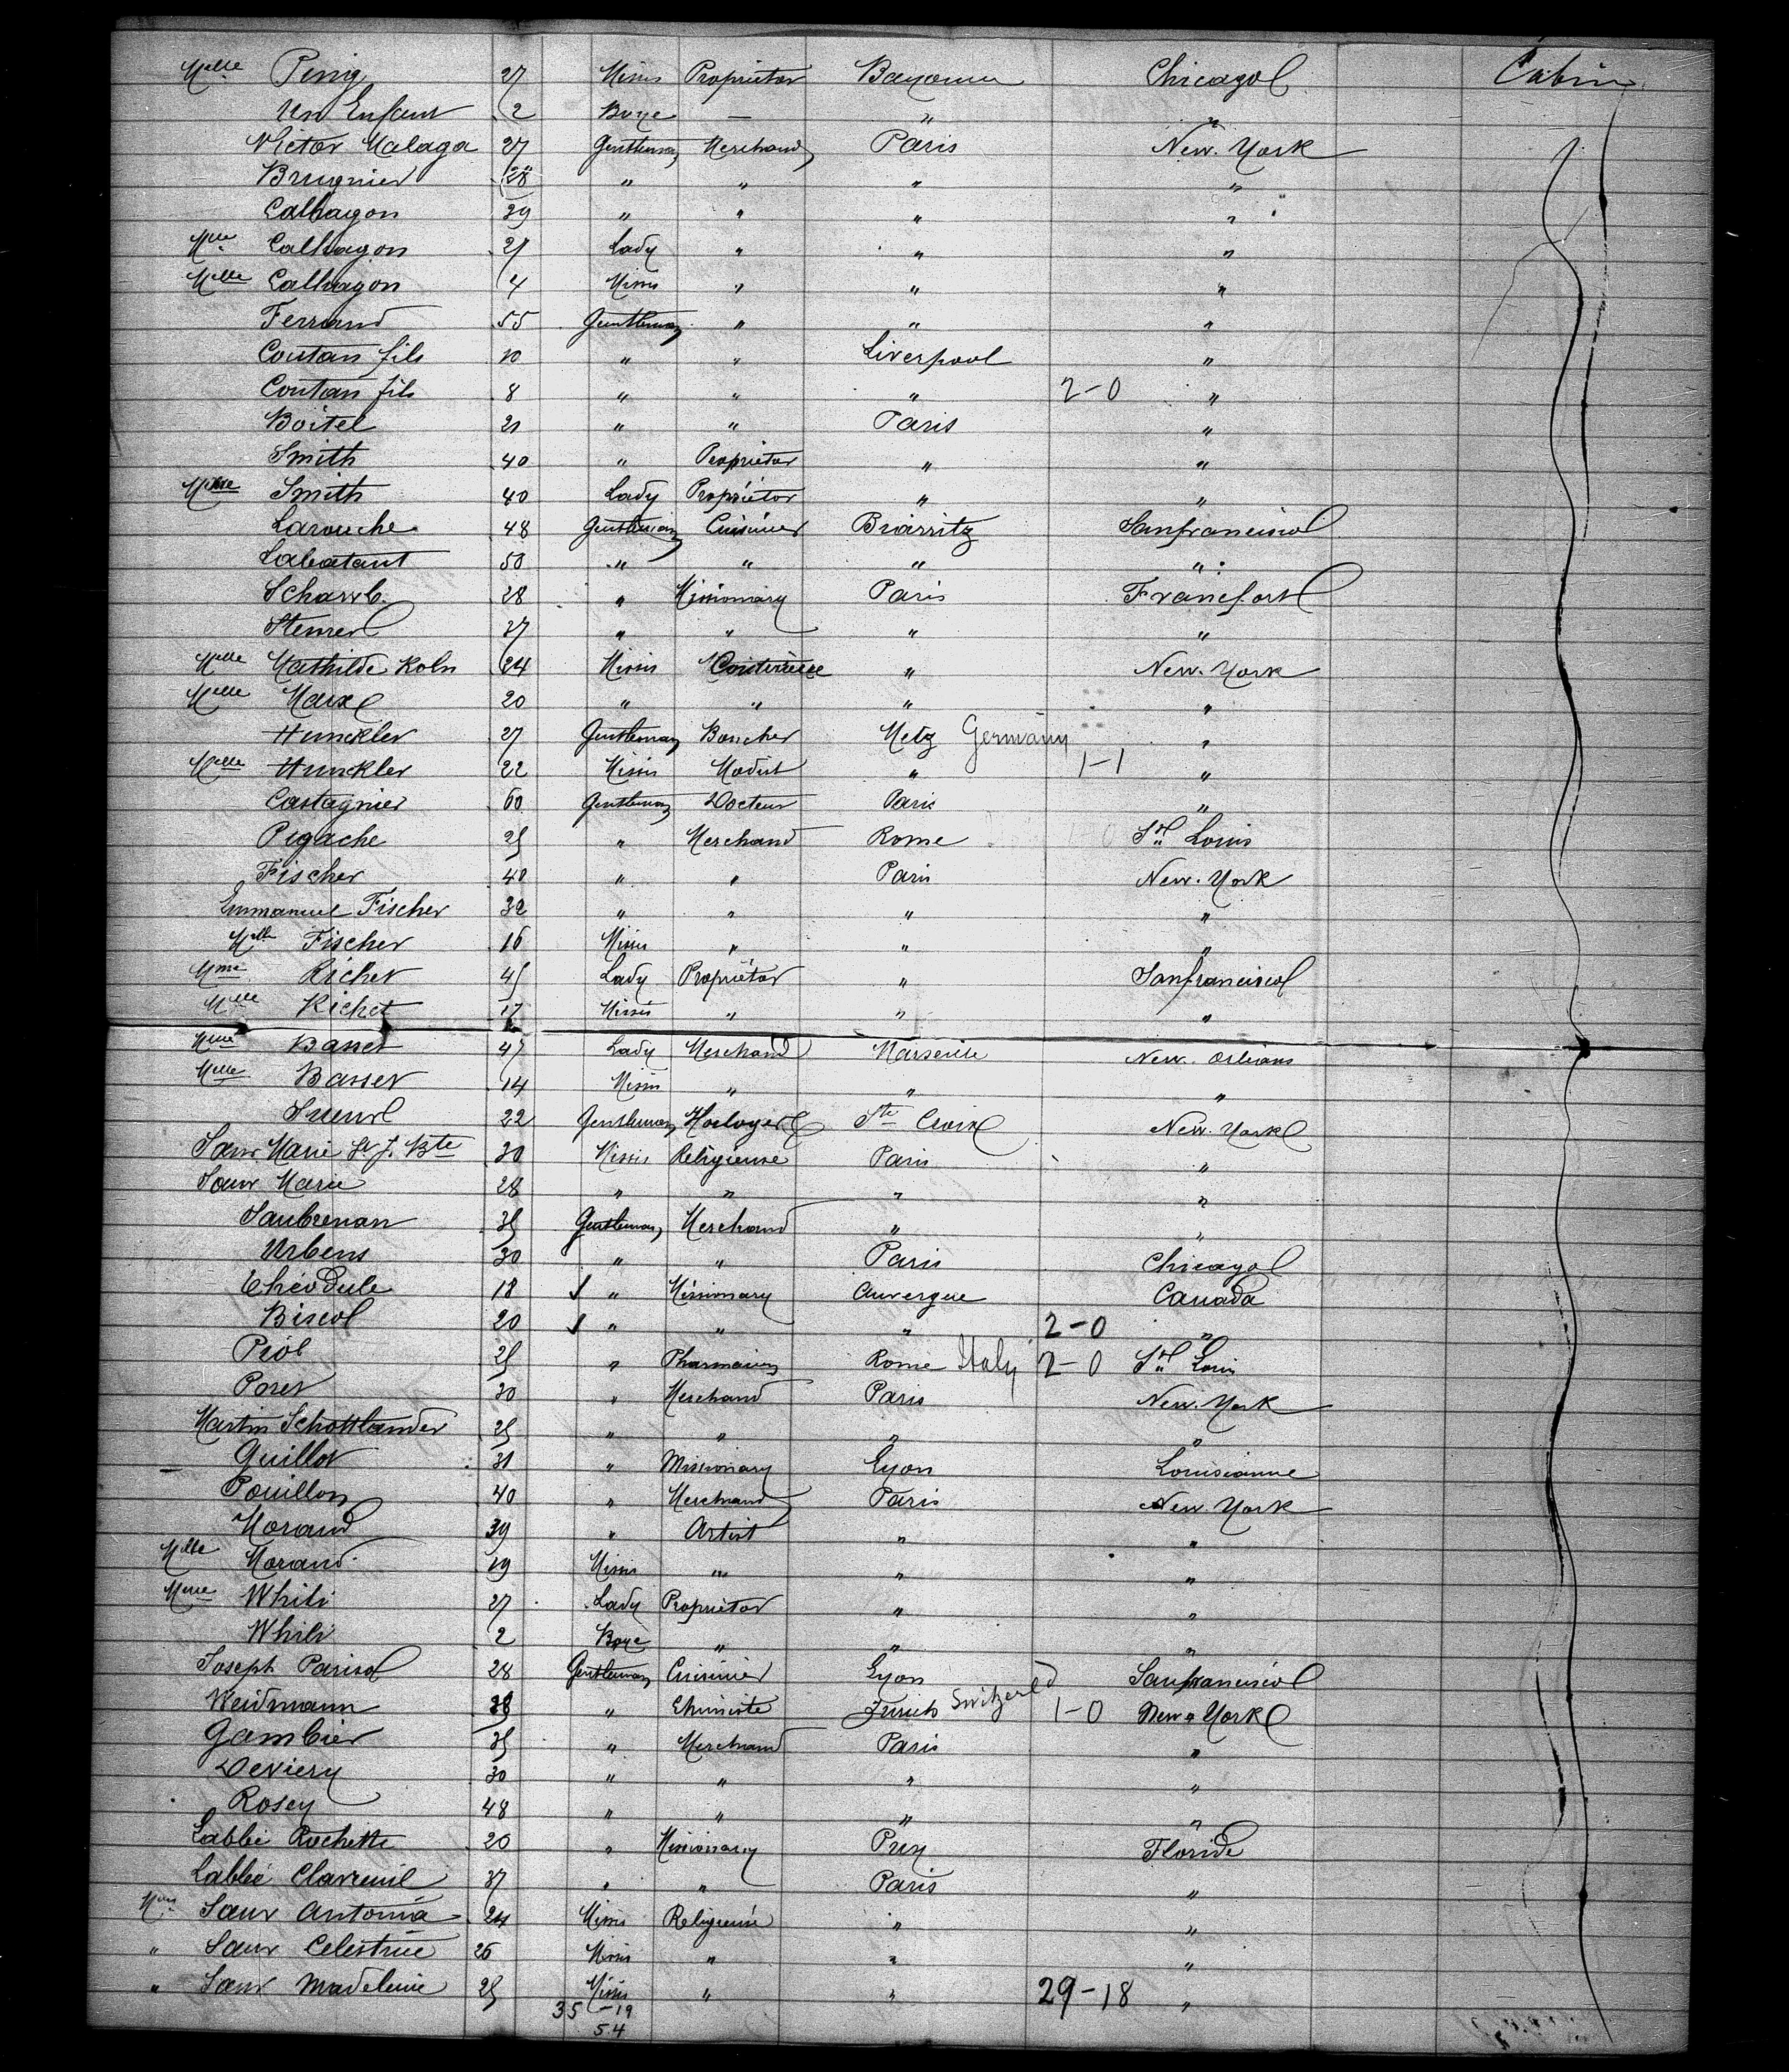 Melle Ping 27 Miss Proprietor Bayonne Chicago Cabin
Un Enfant 2 Boye — "  "
Victor Malaga 27 Gentleman Merchand Paris New-York
Brugnier 28 " " " "
Calhagon 39 " " " "
Mme Calhagon 27 Lady " " "
Melle Calhagon 4 Miss " " "
Ferrand 55 Gentleman " " "
Coutan fils 10 " " Liverpool "
Coutan fils 8 " " " 2-0 "
Boitel 21 " " Paris "
Smith 40 " Proprietor " "
Mme Smith 40 Lady Proprietor " "
Larouche 48 Gentleman Cuisinier Biarritz Sanfrancisco
Labatant 50 " " " "
Scharrb. 28 " Missionary Paris Francfort
27 " " " "
Melle Mathilde Koln 24 Miss Couturière " New-York
Melle Marx 20 " " " "
Hunckler 27 Gentleman Boucher Metz Germany "
Melle Hunckler 22 Miss Modist " 1-1 "
Castagnier 60 Gentleman Docteur Paris "
Pigache 25 " Merchand Rome St Louis
Fischer 40 " " Paris New-York
Emmanuel Fischer 32 " " " "
Melle Fischer 16 Miss " " "
Mme Richet 45 Lady Proprietor " Sanfrancisco
Melle Richet 17 Miss " " "
Mme Basset 47 Lady Merchand Marseille New-Orleans
Melle Basset 14 Miss " " "
22 Gentleman Horloger Ste Croix New-York
Soeur Marie St J. Bte 30 Miss Religieuse Paris "
Soeur Marie 28 " " " "
Saubrenan 35 Gentleman Merchand " "
Urbens 30 " " Paris Chicago
Théodule 18 " Missionary Auvergne Canada
Biscol 20 " " " 2-0 "
Piol 25 " Pharmacien Rome Italy 2-0 St Louis
Poret 30 " Merchand Paris New-York
Martin Schottlander 25 " " " "
Guillot 31 " Missionary Lyon Louisianne
Pouillon 40 " Merchand Paris New-York
Morand 39 " Artist " "
Melle Morand 19 Miss " " "
Mme Whili 27 Lady Proprietor " "
Whili 2 Boye " " "
Joseph Parisot 28 Gentleman Cuisinier Lyon Sanfrancisco
Weidmann 38 " Chimiste Zurich Switzerld 1-0 New-York
Gambier 35 " Merchand Paris "
Deviery 30 " " " "
Rosey 48 " " " "
Labbé Rochette 20 " Missionary Puy Floride
Labbé Clavreuil 37 " " Paris "
Soeur Antonia 24 Miss Religieuse " "
" Soeur Celestine 26 Miss " " "
" Soeur Madeleine 25 Miss " " 29-18 "
35-19
54